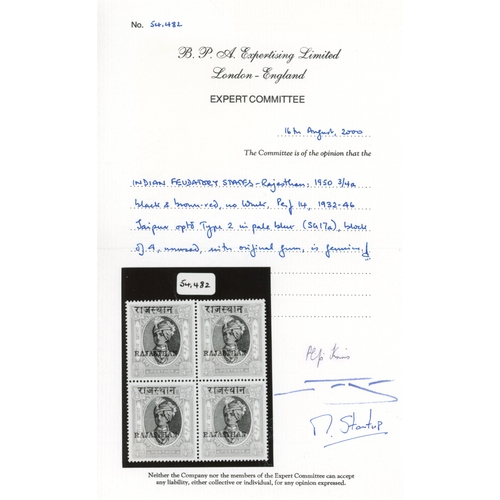 No. 54,482
B. P. A. Expertising Limited
London - England
EXPERT COMMITTEE
16th August, 2000
The Committee is of the opinion that the
INDIAN FEUDATORY STATES - Rajasthan; 1950 3/4a
black & brown-red, no wmk, Perf 14, 1932-46
Jaipur optd Type 2 in pale blue (SG17a), block
of 4, unused, with original gum, is genuine.
54,482
राजस्थान राजस्थान
RAJASTHAN RAJASTHAN
राजस्थान राजस्थान
RAJASTHAN RAJASTHAN
M. Startup
Neither the Company nor the members of the Expert Committee can accept
any liability, either collective or individual, for any opinion expressed.